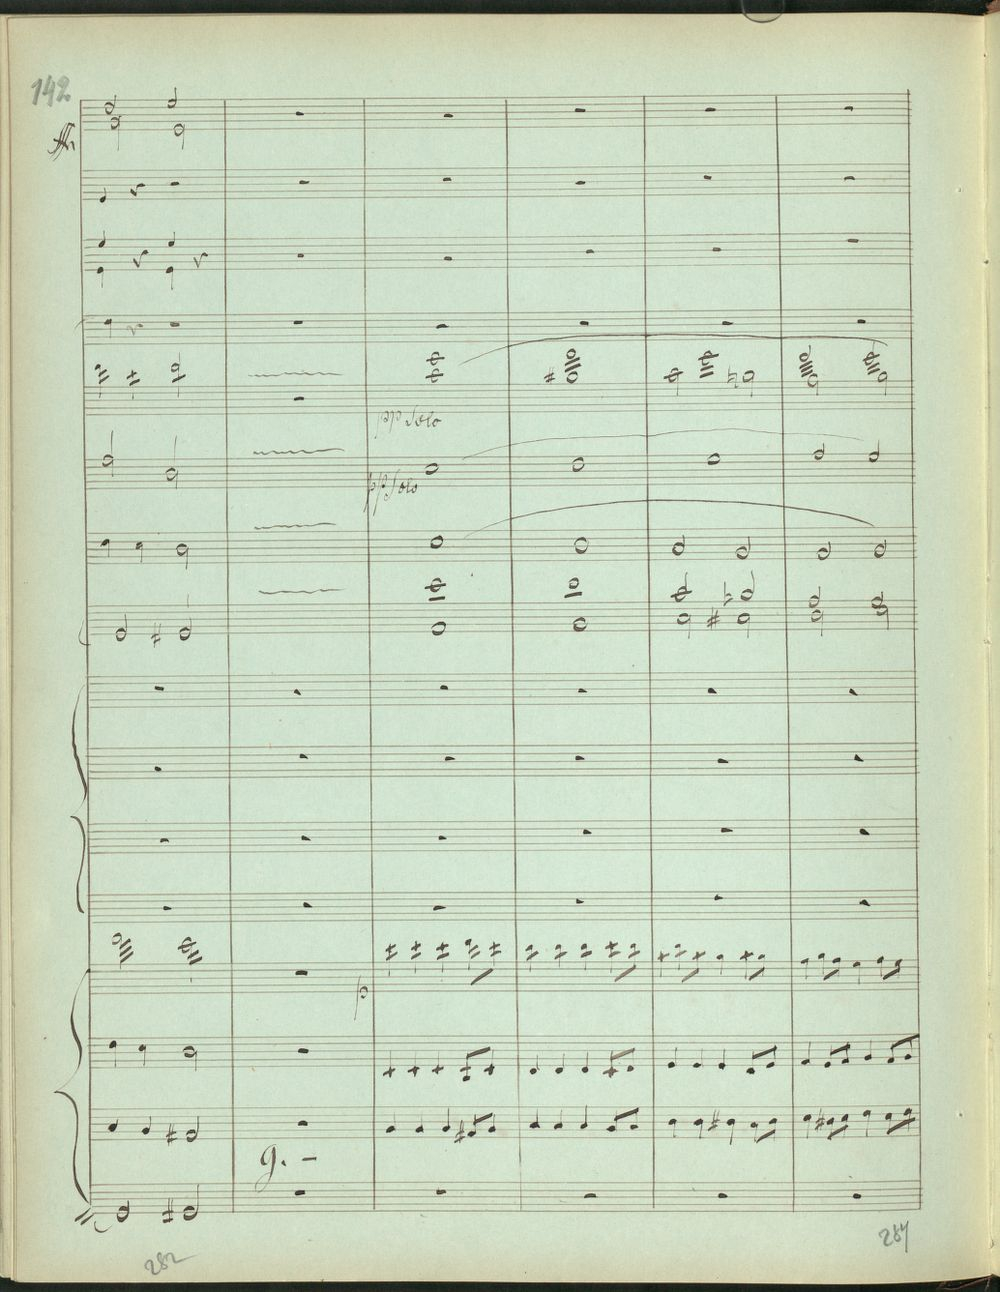 142
pp Solo
pp Solo
p
g. –
282
287